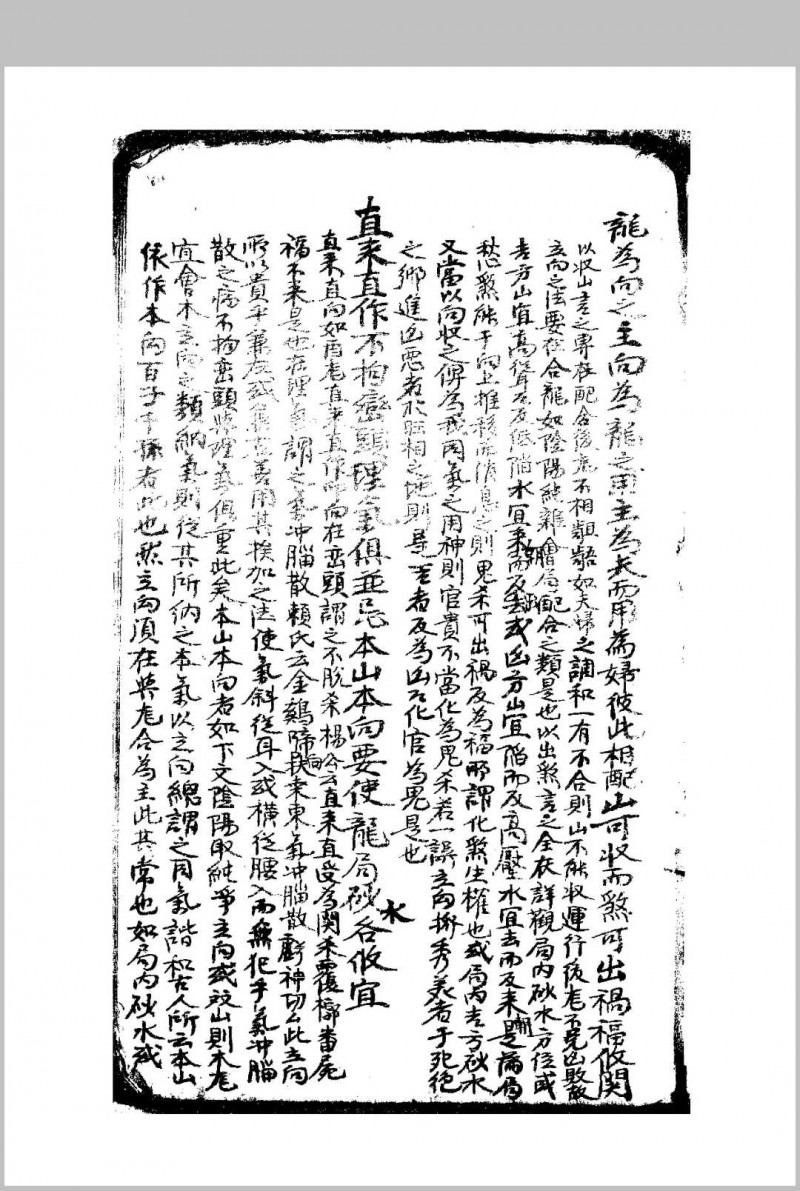 龍為向之主向為龍之用主為夫而用為婦彼此相配山可收而煞可出禍福攸関
以收山言之專在配合後充不相類龉如夫婦之調和一有不合則山不能収運行後尨不免凶敗
立向之法要在合龍如陰陽純雜會局配合之類是也以出煞言之全在詳觀局内砂水方位或
吉方山宜高聳而反低陷水宜來而反去或凶方山宜陷而反高壓水宜去而反来是痛局
愁煞能于向上推移而消息之則鬼杀可出禍反為福所謂化煞生權也或局内吉方砂水
又當以向收之俾為我用氣之用神則官貴不當化為鬼杀若一誤立向撥秀美者于死绝
之鄉進凶惡者於旺相之地則尋吉者反為凶是化官為鬼是也
直来直作不拘巒頭理氣俱並忌本山本向要使龍局砂水各攸宜
直来直向如酉尨直来直作卯向在巒頭謂之不脱杀楊公云直来直受為関杀覆槨番屍
福不来是也在理氣謂之氣冲腦散賴氏云金鷄啼向扶桒東氣冲腦散虧神功么此立向
所以貴乎兼左或兼右善用其挨加之法使氣斜従耳入或横従腰入而無犯乎氣冲腦
散之病不拘巒頭與理氣俱重此矣本山本向者如下文陰陽取純爭立向或故山則木尨
宜會木立向之類納氣則従其所納之本氣以立向總謂之用氣諧和古人所云本山
依作本向百子千孫者此也然立向須在與尨合為主此其常也如局内砂水或